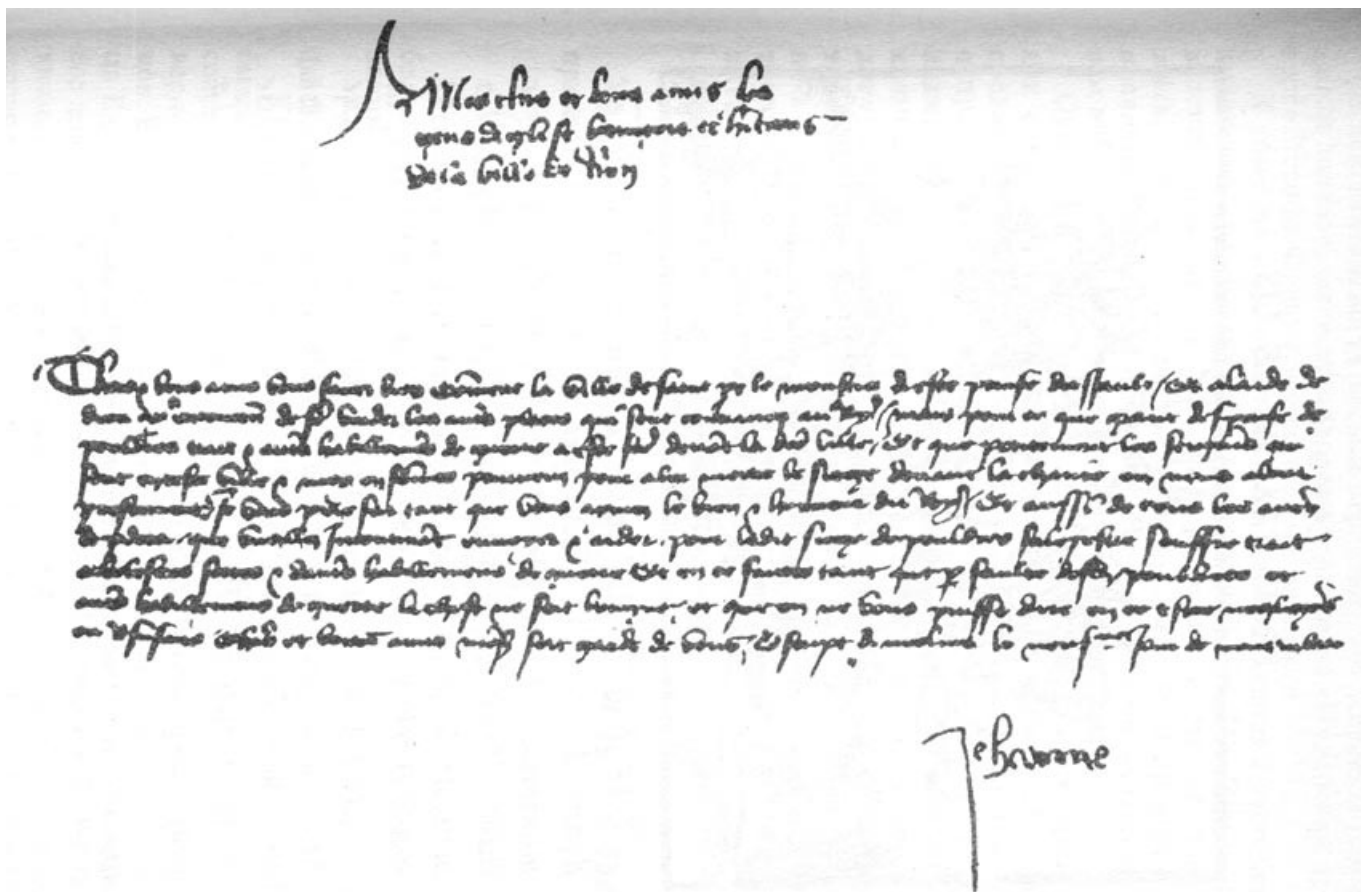 A Mes chers et bons amis les
gens deglise bourgois et h̃itans
de la ville de Rion
Chers et bons amis vous savez bien cõment la ville de saint p̃e le moustier a este prinse dassault / et a laide de
dieu ay entencion de fẽ vuider les aut̃s places qui sont contraires au Roy / mais pour ce que grant despense de
pouldres trait & aut̃s habillemens de guerre a este fcẽ devant lad̃ ville / et que petitement les seigñrs qui
sont en ceste ville & moy en sõmes pourveuz pour aler mectre le siege devant la charite ou nous alons
prestement / je vous prie sur tant que vous aymez le bien & honneur du Roy / et aussi de tous les aut̃s
de p deca que vueillez Incontinãt envoyer & aider pour ledit siege de pouldres salepestre souffre trait
arbelestres fortes & dautr̃s habillemens de guerre Et en ce faictes tant que p̱ faulte desd̃ pouldres et
aut̃s habillemens de guerre la chose ne soit longue et que on ne vous puisse dire en ce estre negligens
ou refusans Chers et bons amis nr̃e sr̃e soit garde de vous / Escript a molins le neuf.me Jour de novembre
Jehanne